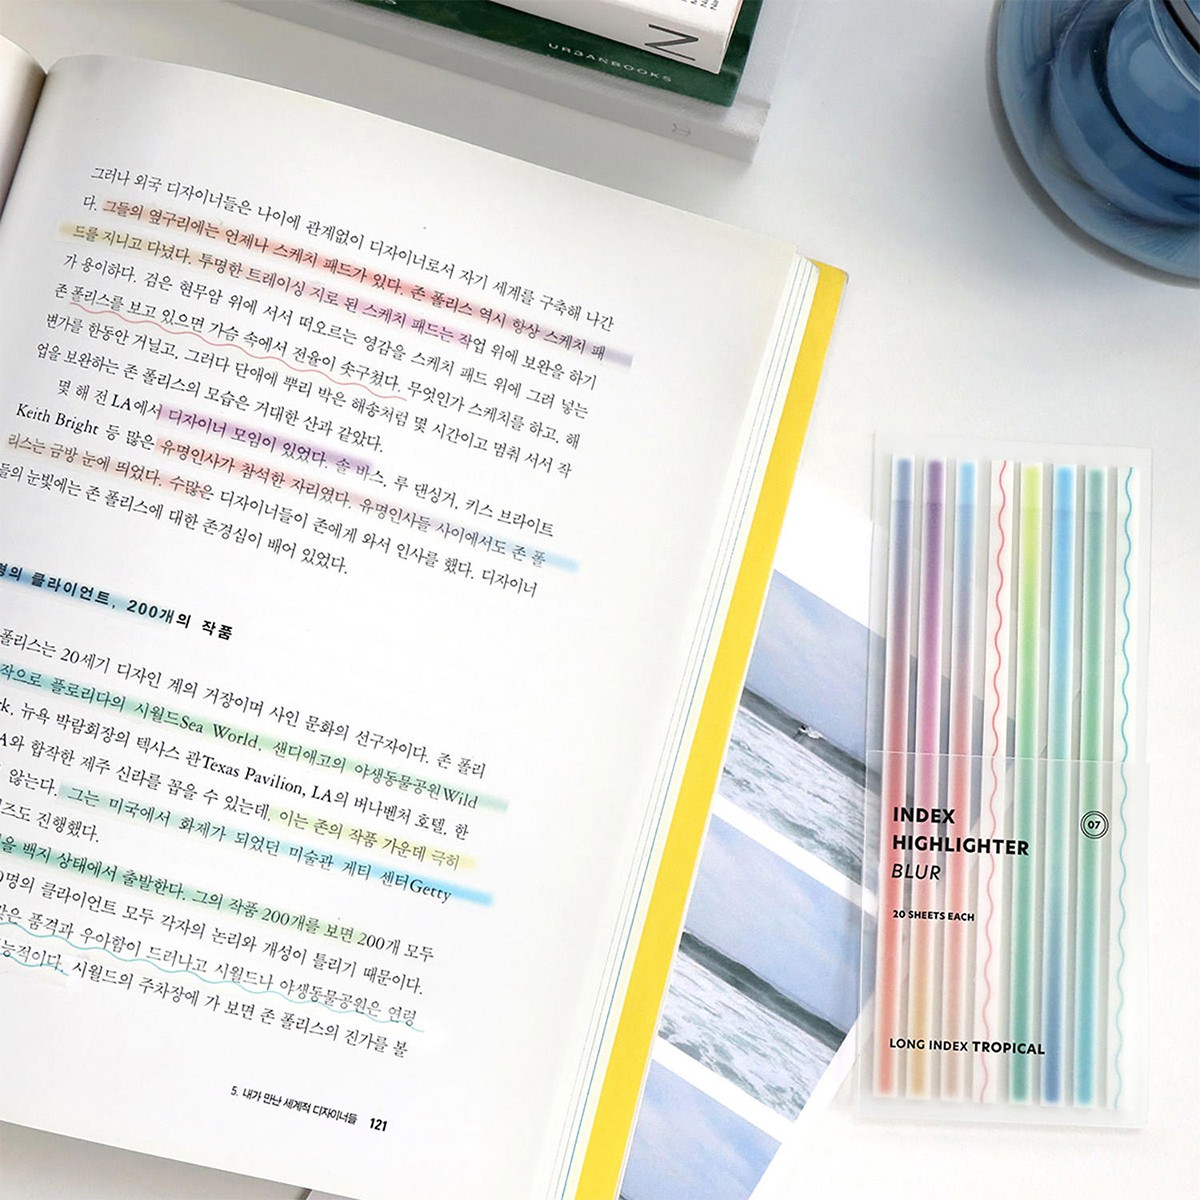 N
URBANBOOKS
그러나 외국 디자이너들은 나이에 관계없이 디자이너로서 자기 세계를 구축해 나간
다. 그들의 옆구리에는 언제나 스케치 패드가 있다. 존 폴리스 역시 항상 스케치 패
드를 지니고 다녔다. 투명한 트레이싱 지로 된 스케치 패드는 작업 위에 보완을 하기
가 용이하다. 검은 현무암 위에 서서 떠오르는 영감을 스케치 패드 위에 그려 넣는
존 폴리스를 보고 있으면 가슴 속에서 전율이 솟구쳤다. 무엇인가 스케치를 하고, 해
변가를 한동안 거닐고, 그러다 단애에 뿌리 박은 해송처럼 몇 시간이고 멈춰 서서 작
업을 보완하는 존 폴리스의 모습은 거대한 산과 같았다.
몇 해 전 LA에서 디자이너 모임이 있었다. 솔 바스, 루 댄싱거, 키스 브라이트
Keith Bright 등 많은 유명인사가 참석한 자리였다. 유명인사들 사이에서도 존 폴
리스는 금방 눈에 띄었다. 수많은 디자이너들이 존에게 와서 인사를 했다. 디자이너
들의 눈빛에는 존 폴리스에 대한 존경심이 배어 있었다.
명의 클라이언트, 200개의 작품
폴리스는 20세기 디자인 계의 거장이며 사인 문화의 선구자이다. 존 폴리
작으로 플로리다의 시월드Sea World, 샌디애고의 야생동물공원Wild
rk, 뉴욕 박람회장의 텍사스 관Texas Pavilion, LA의 버나벤처 호텔, 한
A와 합작한 제주 신라를 꼽을 수 있는데, 이는 존의 작품 가운데 극히
않는다. 그는 미국에서 화제가 되었던 미술관 게티 센터Getty
즈도 진행했다.
을 백지 상태에서 출발한다. 그의 작품 200개를 보면 200개 모두
0명의 클라이언트 모두 각자의 논리와 개성이 틀리기 때문이다.
같은 품격과 우아함이 드러나고 시월드나 야생동물공원은 연령
능적이다. 시월드의 주차장에 가 보면 존 폴리스의 진가를 볼
5. 내가 만난 세계적 디자이너들 121
INDEX
HIGHLIGHTER
BLUR
07
20 SHEETS EACH
LONG INDEX TROPICAL